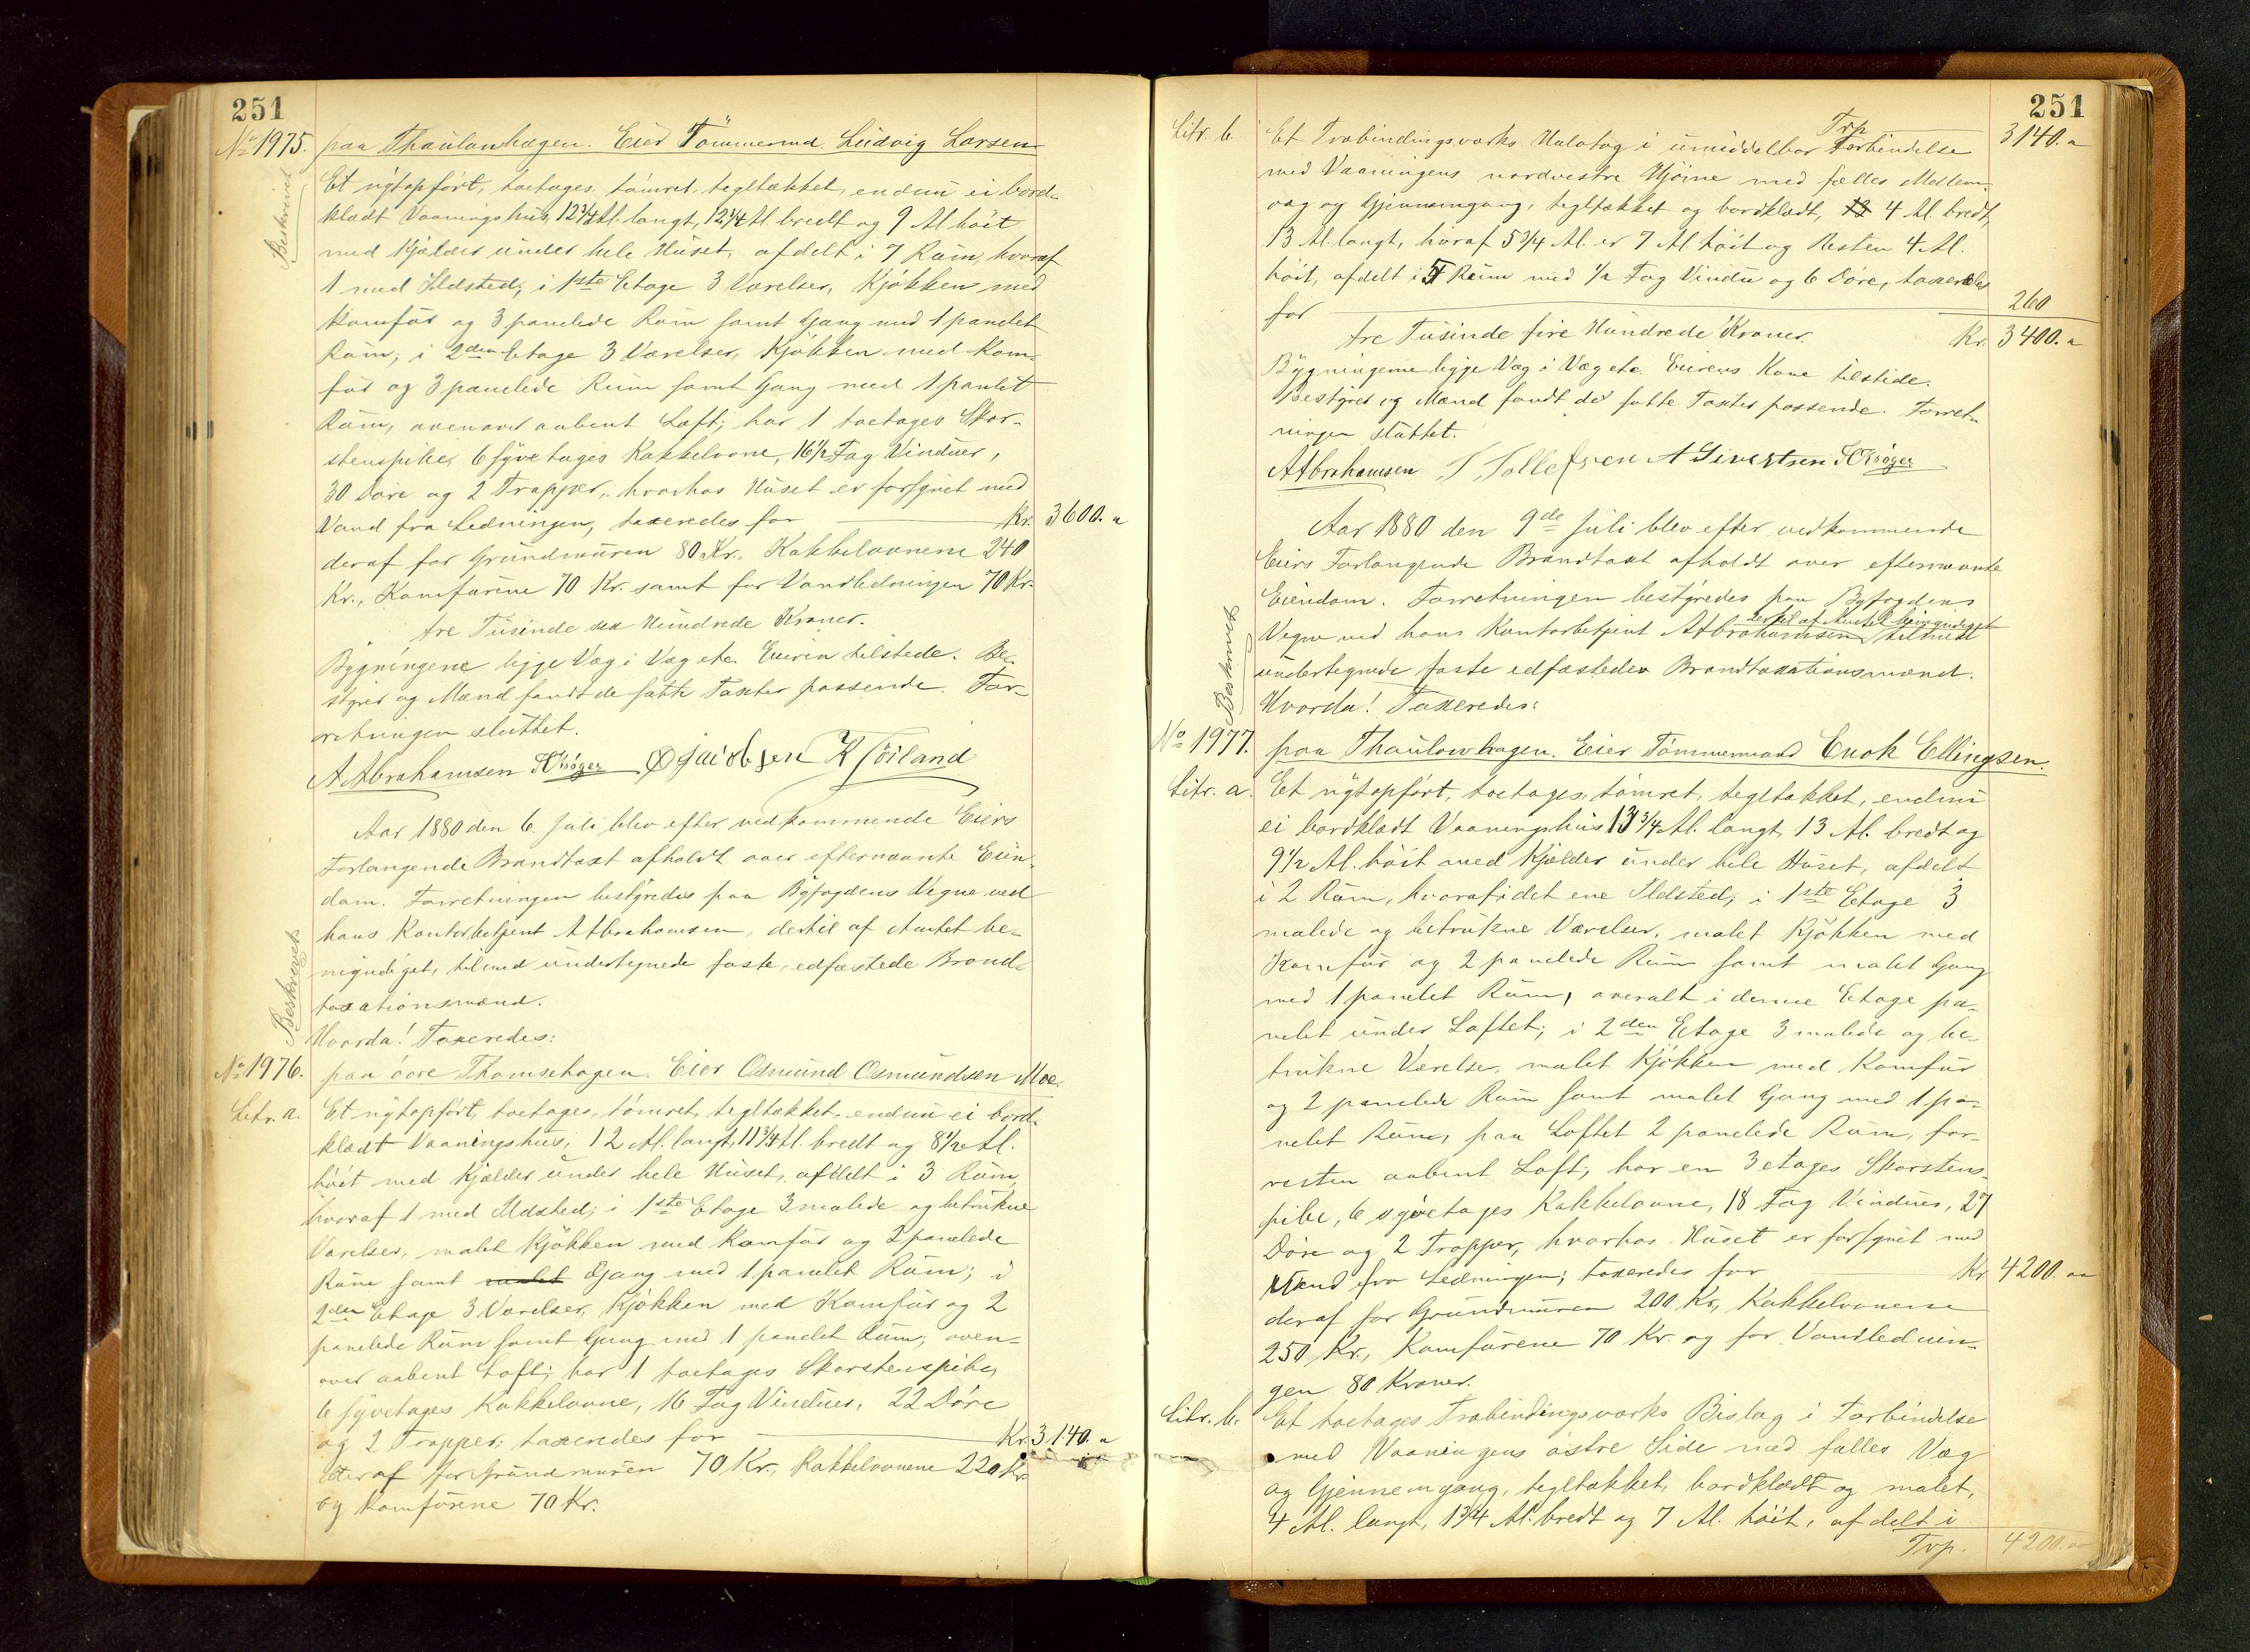 251
No 1975. paa Thaulowhagen. Eier Tömmermd. Ludvig Larsen
Beskrevet
Et nÿtopfört, toetages, tömret, tegltækket, endnu ei bord-
klædt Vaaningshus, 12 3/4 Al. langt, 12 1/4 Al. bredt og 9 Al. höit
med Kjælder under hele Huset, afdelt i 7 Rum, hvoraf
1 med Ildsted; i 1ste Etage 3 Værelser, Kjökken med
Komfur og 3 panelede Rum samt Gang med 1 panelet
Rum; i 2den Etage 3 Værelser, Kjökken med Kom-
fur og 3 panelede Rum samt Gang med 1 panlet
Rum, ovenover aabent Loft; har 1 toetages Skor-
stenspibe, 6 syvetages Kakkelovne, 16 1/2 Fag Vinduer,
30 Döre og 2 Trapper, hvorhos Huset er forsynet med
Vand fra Ledningen, taxeredes for Kr. 3600. "
deraf for Grundmuren 80 Kr. Kakkelovnene 240
Kr., Komfurene 70 Kr. samt for Vandledningen 70 Kr.
tre Tusinde sex Hundrede Kroner.
Bygningene ligge Væg i Væg etc. Eieren tilstede. Be-
styrer og Mænd fandt de satte Taxter passende. For-
retningen sluttet.
A Abrahamsen K Jacobsen K Töiland
Aar 1880 den 6. Juli blev efter vedkommende Eiers
Forlangende Brandtaxt afholdt over efternævnte Eien-
dom. Forretningen bestyredes paa Byfogdens Vegne ved
hans Kontorbetjent A Abrahamsen, dertil af Amtet be-
myndiget, tilmed undertegnede faste, edfæstede Brand-
taxationsmænd.
Beskrevet
Hvorda! Taxeredes:
No 1976. paa övre Thomsehagen. Eier Osmund Osmundsen Moe.
Litr. a. Et nÿtopfört, toetages, tömret, tegltækket, endnu ei bord-
klædt Vaaningshus, 12 Al. langt, 11 3/4 Al. bredt og 8 1/2 Al.
höit med Kjælder under hele Huset, afdelt i 3 Rum,
hvoraf 1 med Ildsted; i 1ste Etage 3 malede og betrukne
Værelser, malet Kjökken med Komfur og 2 panelede
Rum samt malet Gang med 1 panelet Rum; i
2den Etage 3 Værelser, Kjökken med Komfur og 2
panelede Rum samt Gang med 1 panelet Rum; oven-
over aabent Loft; har 1 toetages Skorstenspibe,
6 syvetages Kakkelovne, 16 Fag Vinduer, 22 Döre
og 2 Trapper; taxeredes for Kr. 3140. "
deraf for Grundmuren 70 Kr., Kakkelovnene 220 Kr.
og Komfurene 70 Kr.
251
Trp 3140. "
Litr. b. Et Træbindingsværks Halvtag i umiddelbar Forbindelse
med Vaaningens nordvestre Hjörne med fælles Mellem-
væg og Gjennemgang, tegltækket og bordklædt, 13 4 Al. bredt,
13 Al. langt, hvoraf 5 3/4 Al. er 7 Al. höit og Resten 4 Al.
höit, afdelt i 5 Rum med 1/2 Fag Vindu og 6 Döre, taxeredes
for 260
tre Tusinde fire Hundrede Kroner. Kr. 3400. "
Bygningerne ligge Væg i Væg etc. Eierens Kone tilstede.
Bestyrer og Mænd fandt de satte Taxter passende. Forret-
ningen sluttet.
A Abrahamsen T. Tollefsen A Sivertsen
Aar 1880 den 9de Juli blev efter vedkommende
Eiers Forlangende Brandtaxt afholdt over efternævnte
Eiendom. Forretningen bestyredes paa Byfogdens
dertil af Amtet bemyndiget
Vegne ved hans Kontorbetjent A Abrahamsen tilmed
undertegnede faste edfæstede Brandtaxationsmænd.
Beskrevet
Hvorda! Taxeredes:
No 1977. paa Thaulowhagen. Eier Tömmermand Enok Ellingsen.
Litr. a. Et nÿtopfört, toetages, tömret, tegltækket, endnu
ei bordklædt Vaaningshus 13 3/4 Al. langt, 13 Al. bredt og
9 1/2 Al. höit med Kjælder under hele Huset, afdelt
i 2 Rum, hvoraf i det ene Ildsted; i 1ste Etage 3
malede og betrukne Værelser, malet Kjökken med
Komfur og 2 panelede Rum samt malet Gang
med 1 panelet Rum, overalt i denne Etage pa-
nelet under Loftet; i 2den Etage 3 malede og be-
trukne Værelser, malet Kjökken med Komfur
og 2 panelede Rum samt malet Gang med 1 pa-
nelet Rum, paa Loftet 2 panelede Rum, for-
resten aabent Loft; har en 3 etages Skorstens-
pibe, 6 syvetages Kakkelovne, 18 Fag Vinduer, 27
Döre og 2 Trapper, hvorhos Huset er forsynet med
Vand fra Ledningen; taxeredes for Kr. 4200. "
deraf for Grundmuren 200 Kr., Kakkelovnene
250 Kr., Komfurene 70 Kr. og for Vandlednin-
gen 80 Kroner.
Litr. b. Et toetages Træbindingsværks Bislag i Forbindelse
med Vaaningens östre Side med fælles Væg
og Gjennemgang, tegltækket, bordklædt og malet,
4 Al. langt, 1 3/4 Al. bredt og 7 Al. höit, afdelt i
Trp. 4200. "